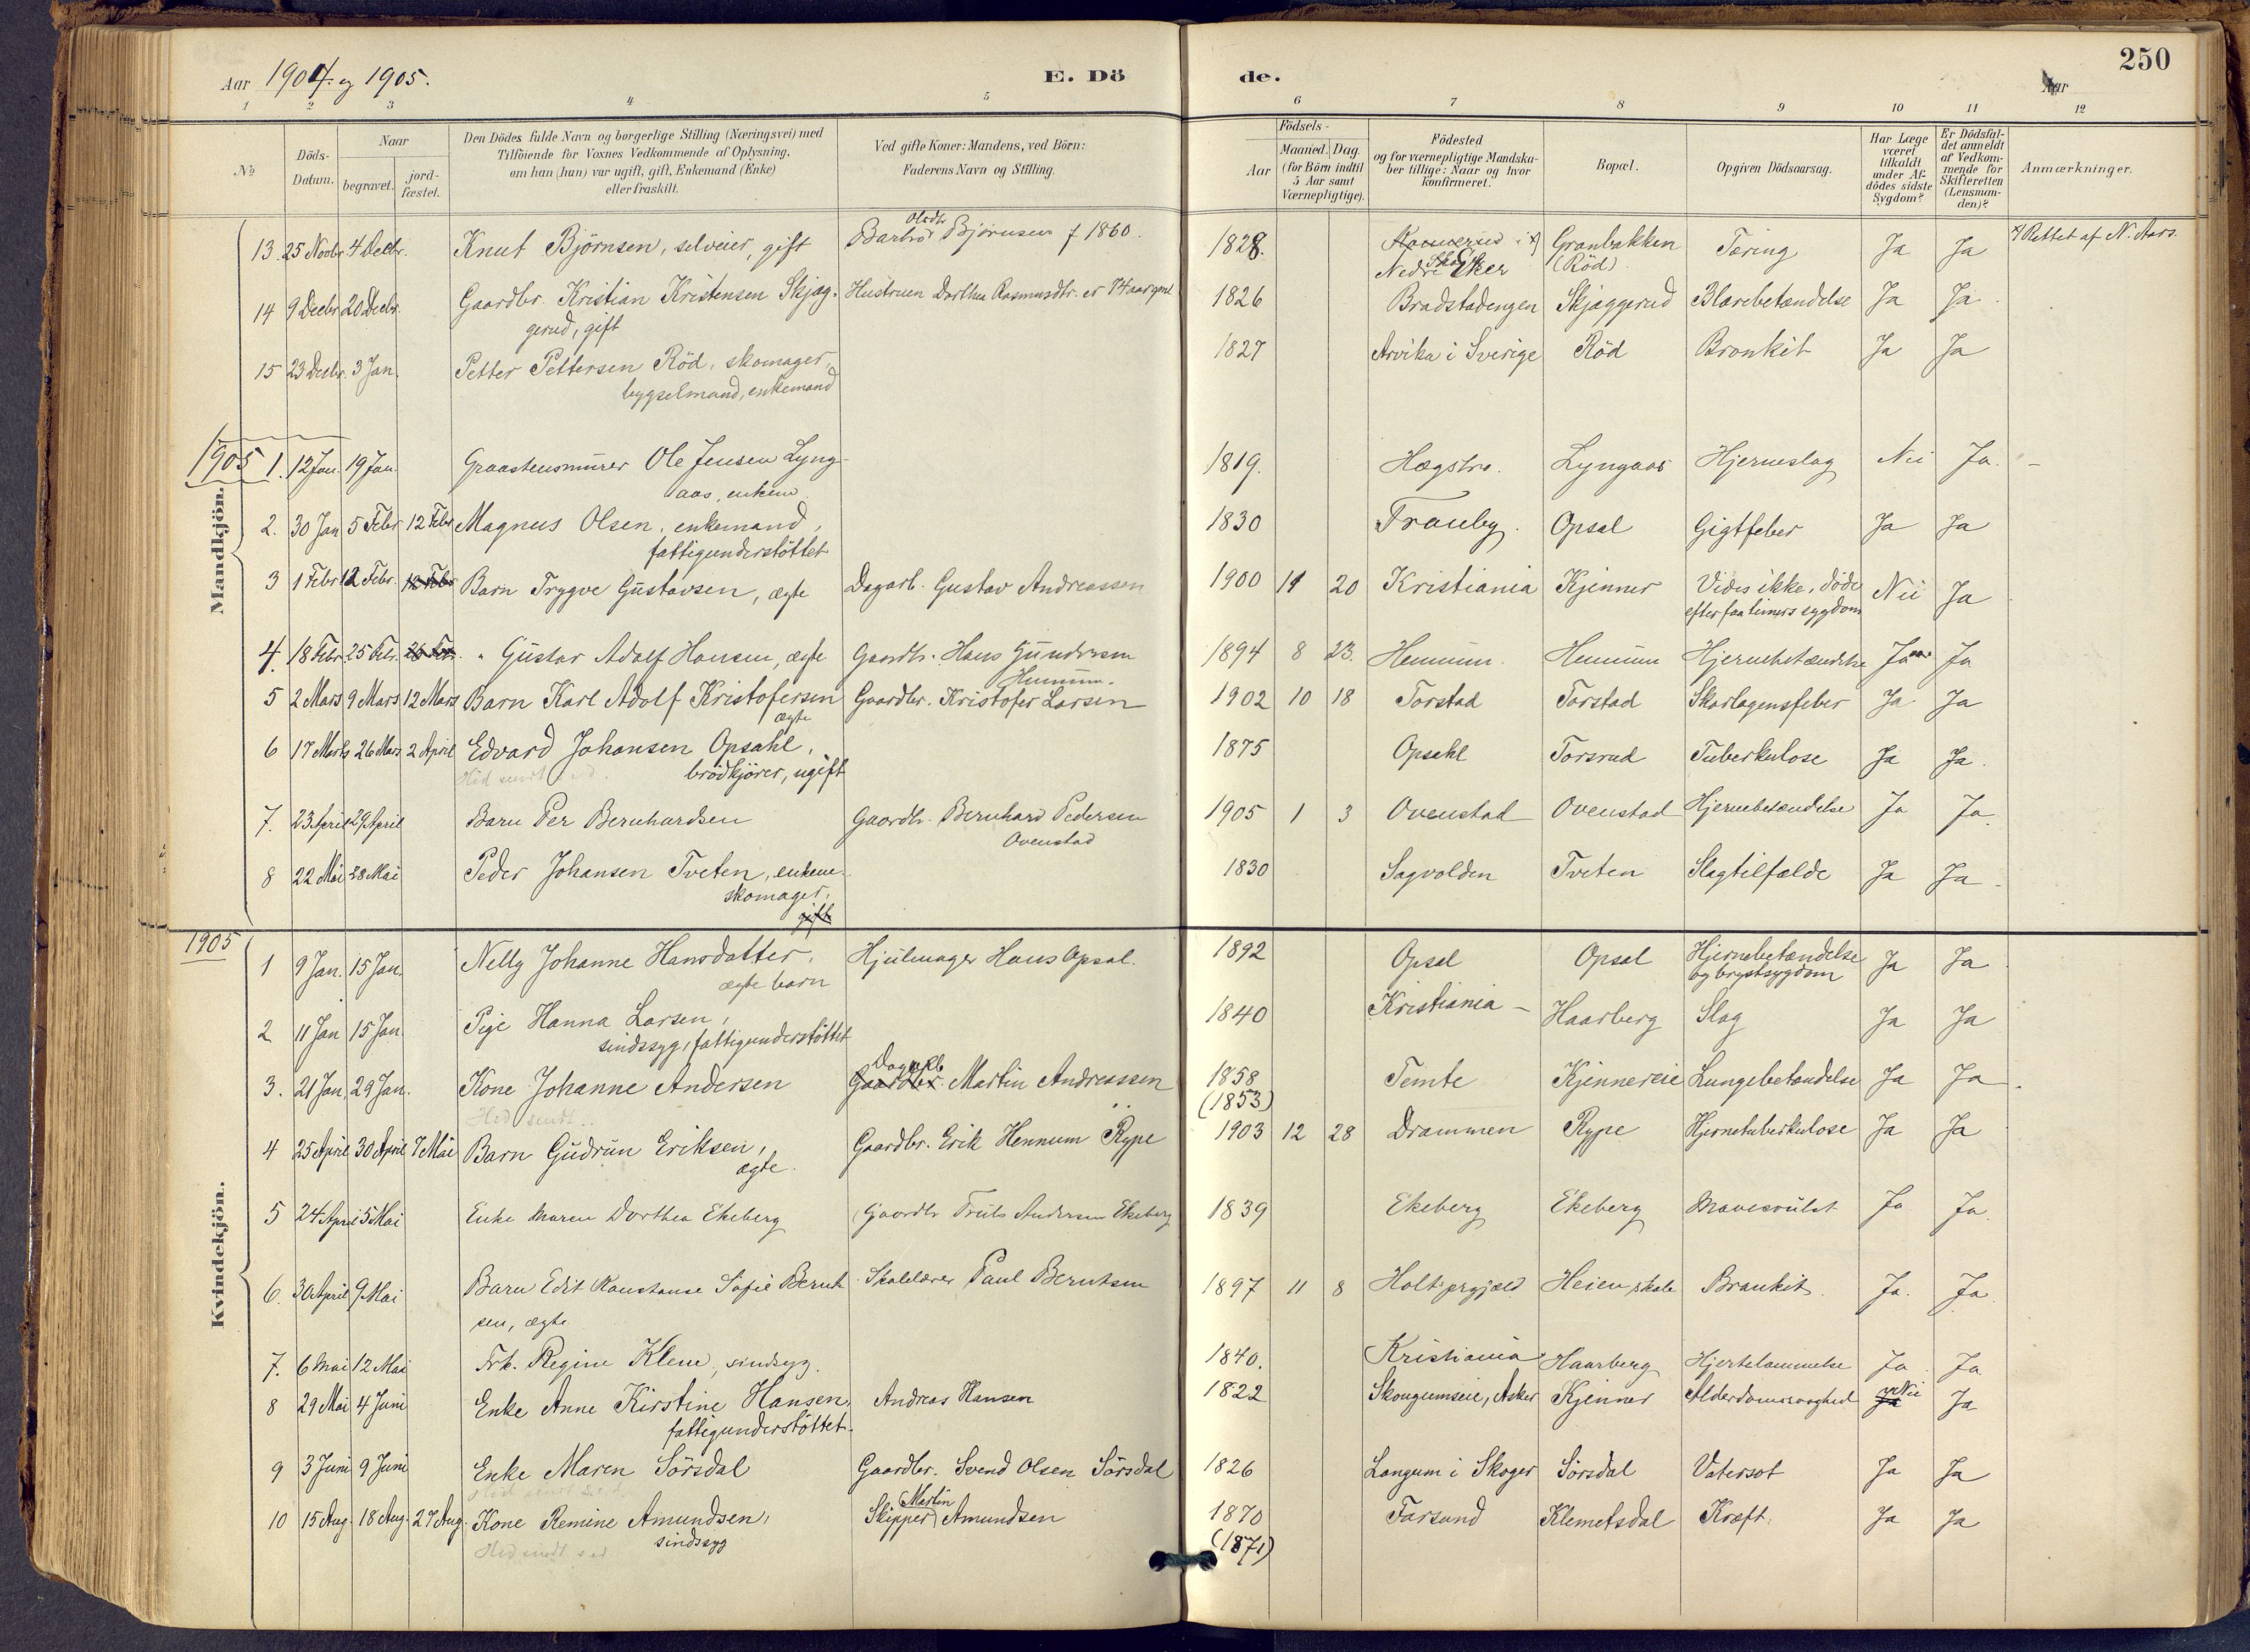 Aar 1904 og 1905.
E. Dö
de.
250
Aar
1 2 3 4 5 6 7 8 9 10 11 12
№
Döds-
Datum.
Naar
begravet.
jord-
fæstet.
Den Dödes fulde Navn og borgerlige Stilling (Næringsvei) med
Tilföiende for Voxnes Vedkommende af Oplysning,
om han (hun) var ugift, gift, Enkemand (Enke)
eller fraskilt.
Ved gifte Koner: Mandens, ved Börn:
Faderens Navn og Stilling.
Födsels-
Aar
Maaned. Dag.
(for Börn indtil
5 Aar samt
Værnepligtige).
Födested
og for værnepligtige Mandska-
ber tillige: Naar og hvor
konfirmeret.
Bopæl.
Opgiven Dödsaarsag.
Har Læge
været
tilkaldt
under Af-
dödes sidste
Sygdom?
Er Dödsfal-
det anmeldt
af Vedkom-
mende for
Skifteretten
(Lensman-
den)?
Anmærkninger.
Mandkjön.
13. 25 Novbr. 4 Decbr. Knut Björnsen, selveier, gift Barbro Olsdtr Björnsen f 1860. 1828. Nedre Eker Granbakken (Röd) Tæring Ja Ja x) Rettet af N. Aars.
14 9 Decbr 20 Decbr. Gaardbr. Kristian Kristensen Skjæg- Hustruen Dorthea Rasmusdtr. er 74 aar gml 1826 Bradstadengen Skjæggerud Blærebetændelse Ja Ja
gerud, gift
15 23 Decbr. 3 Jan. Petter Pettersen Röd, skomager, 1827 Arvika i Sverige Röd Bronkit Ja Ja
bygselmand, enkemand
1905 1. 12 Jan. 19 Jan. Graastensmurer Ole Jensen Lyng- 1819. Hægstro. Lyngaas Hjerneslag Nei Ja. -
aas, enkem.
2. 30 Jan 5 Febr 12 Febr Magnus Olsen, enkemand, 1830 Tranby. Opsal Gigtfeber Ja Ja
fattigunderstöttet
3 1 Febr 12 Febr. 12 Febr Barn Trygve Gustavsen, ægte Dagarb. Gustav Andreassen 1900 11 20 Kristiania Kjenner Vides ikke, döde Nei Ja
efter faa timers sygdom
4. 18 Febr 25 Febr. " Gustav Adolf Hansen, ægte Gaardbr. Hans Gundersen 1894 8 23. Hennum. Hennum Hjernebetændelse Ja Ja
Hennum.
5 2 Mars 9 Mars 12 Mars Barn Karl Adolf Kristofersen Gaardbr. Kristofer Larsen 1902 10 18 Torstad Torstad Skarlagensfeber Ja Ja
ægte
6 17 Marts 26 Mars 2 April Edvard Johansen Opsahl, 1875 Opsahl Torsrud Tuberkulose Ja Ja.
brödkjörer, ugift
7. 23 April 29 April Barn Per Bernhardsen Gaardbr. Bernhard Pedersen 1905 1 3 Ovenstad Ovenstad Hjernebetændelse Ja Ja.
Ovenstad
8 22 Mai 28 Mai Peder Johansen Tveten, enkem. 1830 Sagvolden Tveten Slagtilfælde Ja Ja.
skomager,
gift
1905
Kvindekjön.
1 9 Jan. 15 Jan. Nelly Johanne Hansdatter, Hjulmager Hans Opsal. 1892 Opsal Opsal Hjernebetændelse Ja Ja
ægte barn og brystsygdom
2 11 Jan 15 Jan Pige Hanna Larsen, 1840 Kristiania - Haarberg Slag Ja Ja
sindssyg, fattigunderstöttet
3. 21 Jan. 29 Jan. Kone Johanne Andersen Gaardbr. Dagarb Martin Andreassen 1858 Temte Kjennereie Lungebetændelse Ja Ja.
Hid sendt (1853)
4 25 April 30 April 7 Mai Barn Gudrun Eriksen, Gaardbr. Erik Hennum Rype 1903 12 28 Drammen Rype Hjernetuberkulose Ja Ja
ægte.
5 24 April 5 Mai Enke Maren Dorthea Ekeberg Gaardbr Truls Andersen Ekeberg 1839 Ekeberg Ekeberg Mavesvulst Ja Ja.
6. 30 April 9 Mai Barn Edit Konstanse Sofie Bernt- Skolelærer Paul Berntsen 1897 11 8 Holt prgjæld Heien skole Bronkit. Ja. Ja
sen, ægte
7. 6 Mai 12 Mai Frk. Regine Klem, sindsyg. 1840. Kristiania Haarberg Hjertelammelse Ja Ja
8 29 Mai 4 Juni Enke Anne Kirstine Hansen, Andreas Hansen 1822 Skougumseie, Asker Kjenner Alderdomssvaghed Ja Nei Ja
fattigunderstöttet.
9 3 Juni 9 Juni Enke Maren Sörsdal Gaardbr. Svend Olsen Sörsdal 1826 Langum i Skoger Sörsdal Vatersot Ja Ja
10 15 Aug. 18 Aug. 27 Aug. Kone Remine Amundsen, Skipper Martin Amundsen 1870 Farsund Klemetsdal Kræft. Ja Ja
sindssyg (1871)